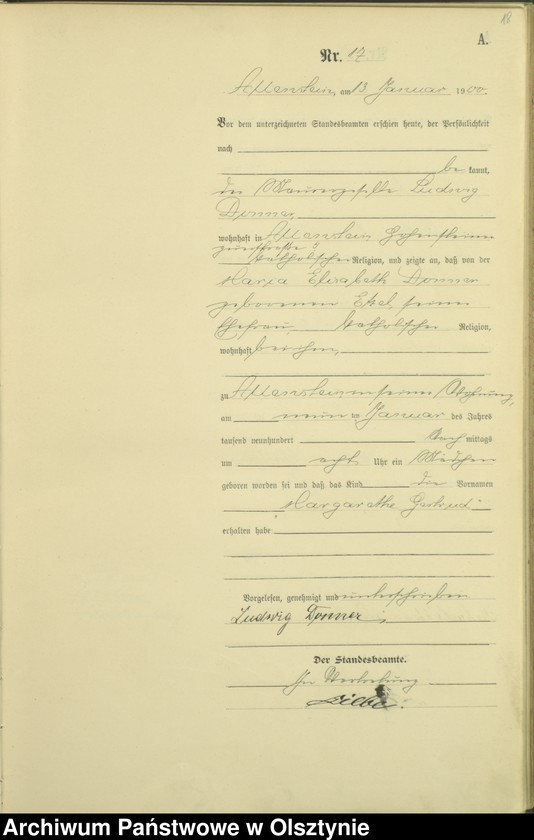 18
A.
Nr. 17
Allenstein, am 13 Januar 1900.
Vor dem unterzeichneten Standesbeamten erschien heute, der Persönlichkeit
nach
be kannt,
der Maurergeselle Ludwig
Donner,
wohnhaft in Allenstein Hohensteiner
katholischer Religion, und zeigte an, daß von der
Maria Elisabeth Donner
geborenen seiner
Ehefrau, katholischer Religion,
wohnhaft bei ihm,
zu Allenstein in seiner Wohnung,
am neun ten Januar des Jahres
tausend neunhundert Nach mittags
um acht Uhr ein Mädchen
geboren worden sei und daß das Kind die Vornamen
Margarethe Gertrud
erhalten habe
Vorgelesen, genehmigt und unterschrieben
Ludwig Donner
Der Standesbeamte.
In Vertretung
Archiwum Państwowe w Olsztynie